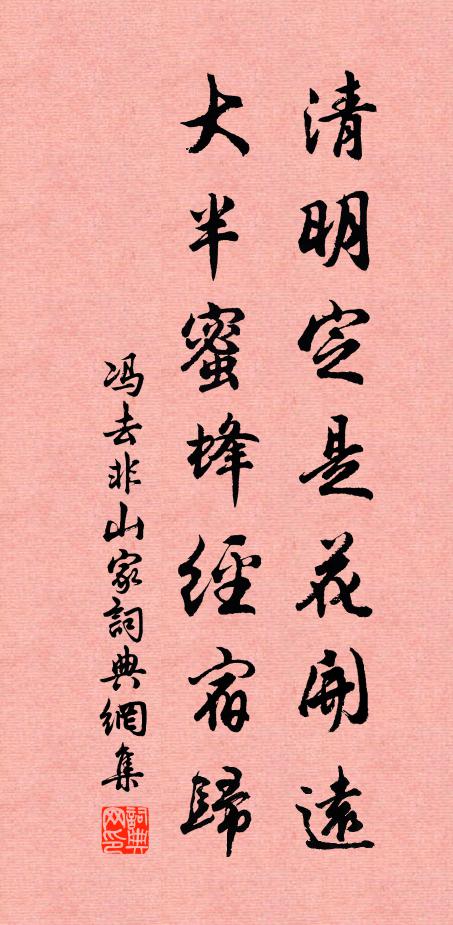 清明定是花開遠
大半蜜蜂經宿歸
冯去非山家詞典網集
詞典网印